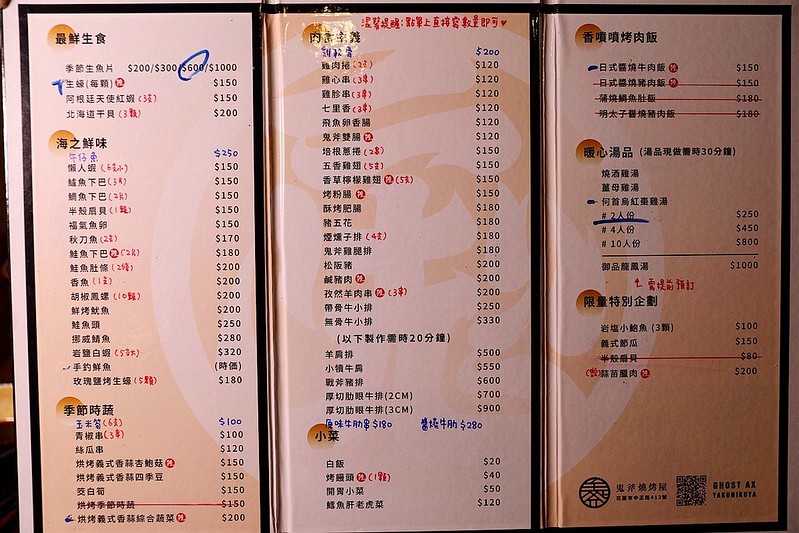 最鮮生食
季節生魚片 $200/$300/$600/$1000
生蠔(每顆) $150
阿根廷天使紅蝦(3支) $150
北海道干貝(3顆) $200
海之鮮味
$250
懶人蝦 $150
鱸魚下巴(3片) $150
鯛魚下巴(2片) $150
半殼扇貝(1顆) $150
福氣魚卵 $150
秋刀魚(2支) $170
鮭魚下巴(2片) $180
鮭魚肚條(2條) $200
香魚(1支) $200
胡椒鳳螺(10顆) $200
鮮烤魷魚 $200
鮭魚頭 $250
挪威鯖魚 $280
岩鹽白蝦 $320
手釣鮮魚 (時價)
玫瑰鹽烤生蠔(5顆) $180
季節時蔬
玉米筍(6支) $100
青椒串(3串) $100
絲瓜串 $120
烘烤義式香蒜杏鮑菇 $150
烘烤義式香蒜四季豆 $150
筊白筍 $150
烘烤季節時蔬 $150
烘烤義式香蒜綜合蔬菜 $200
溫馨提醒:點單上直接寫數量即可♥
肉食主義
$200
雞肉捲(2支) $120
雞心串(3串) $120
雞胗串(3串) $120
七里香(3串) $120
飛魚卵香腸 $120
鬼斧雙腸 $120
培根蔥捲(2串) $150
五香雞翅(5支) $150
香草檸檬雞翅(5支) $150
烤粉腸 $150
酥烤肥腸 $180
豬五花 $180
煙燻子排(4支) $180
鬼斧雞腿排 $180
松阪豬 $200
鹹豬肉 $200
孜然羊肉串(3串) $200
帶骨牛小排 $250
無骨牛小排 $330
(以下製作需時20分鐘)
羊肩排 $500
小犢牛肩 $550
戰斧豬排 $600
厚切肋眼牛排(2CM) $700
厚切肋眼牛排(3CM) $900
原味牛肋串$180 醬燒牛肋$280
小菜
白飯 $20
烤饅頭(1顆) $40
開胃小菜 $50
鱈魚肝老虎菜 $120
香噴噴烤肉飯
日式醬燒牛肉飯 $150
日式醬燒豬肉飯 $150
蒲燒鯛魚肚飯 $180
明太子醬燒豬肉飯 $180
暖心湯品 (湯品現做需時30分鐘)
燒酒雞湯
薑母雞湯
何首烏紅棗雞湯
# 2人份 $250
# 4人份 $450
# 10人份 $800
御品龍鳳湯 $1000
需提前預訂
限量特別企劃
岩塩小鮑魚 (3顆) $100
義式節瓜 $150
半殼扇貝 $80
蒜苗臘肉 $200
鬼斧燒烤屋
花蓮市中正路412號
GHOST AX
YAKUNIKUYA